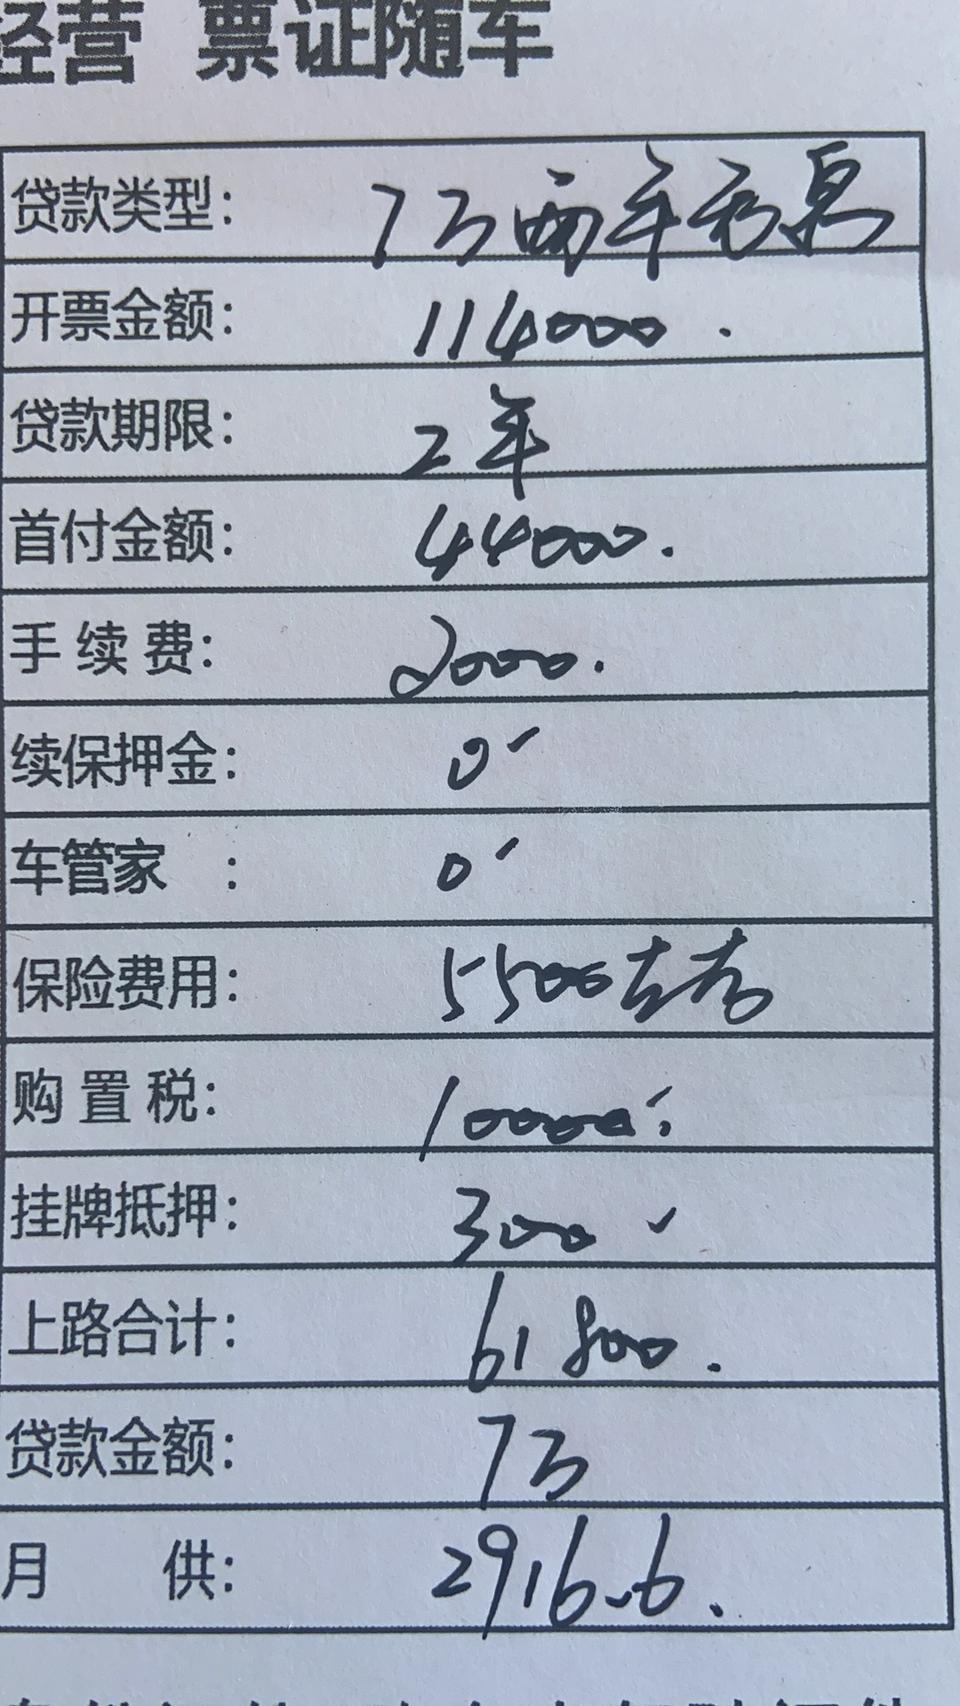 经营 票证随车
贷款类型： 7万两年无息
开票金额： 114000.
贷款期限： 2年
首付金额： 44000.
手续费： 2000.
续保押金： 0
车管家 ： 0
保险费用： 5500左右
购置税： 10000
挂牌抵押： 300
上路合计： 61800.
贷款金额： 7万
月 供： 2916.6.